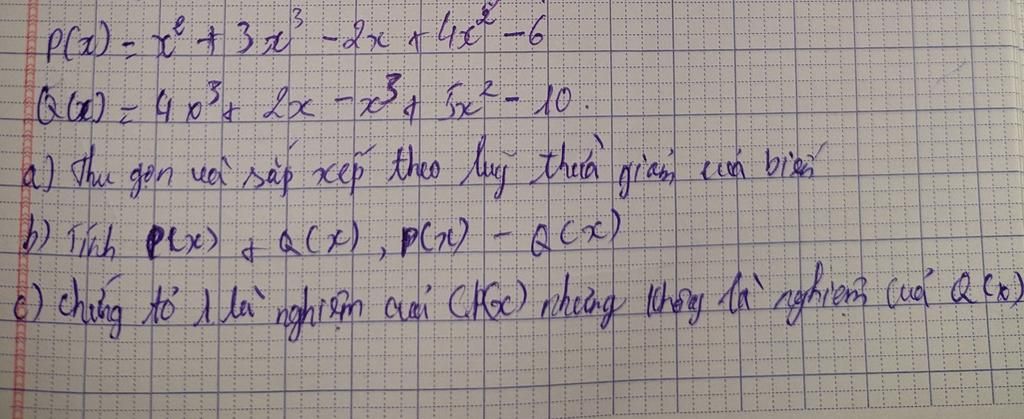 P(x) = x² + 3x³ - 2x + 4x² - 6
Q(x) = 4x³ + 2x - x³ + 5x² - 10.
a) Thu gọn và sắp xếp theo luỹ thừa giảm của biến
b) Tính P(x) + Q(x), P(x) - Q(x)
c) chứng tỏ 1 là nghiệm của (x) nhưng không là nghiệm của Q(x)